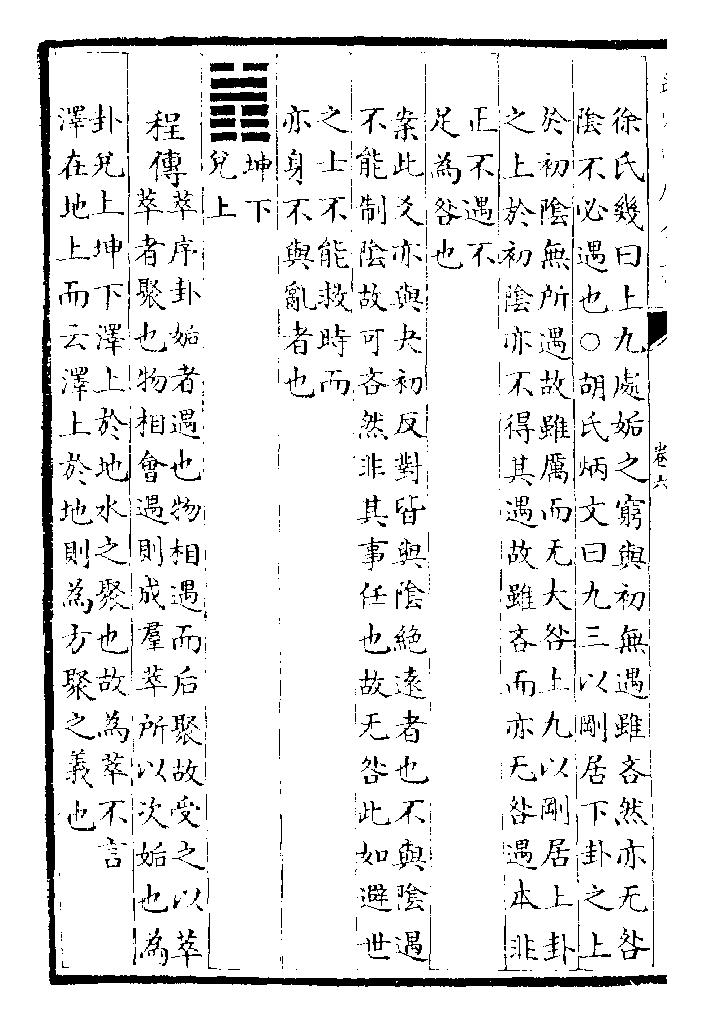 卷六
徐氏幾曰上九處姤之窮與初無遇雖吝然亦无咎
陰不必遇也○胡氏炳文曰九三以剛居下卦之上
於初陰無所遇故雖厲而无大咎上九以剛居上卦
之上於初陰亦不得其遇故雖吝而亦无咎遇本非
正不遇不
足為咎也
案此爻亦與夬初反對皆與陰絕遠者也不與陰遇
不能制陰故可吝然非其事任也故无咎此如避世
之士不能救時而
亦身不與亂者也
坤下
兌上
程傳萃序卦姤者遇也物相遇而后聚故受之以萃
萃者聚也物相會遇則成羣萃所以次姤也為
卦兌上坤下澤上於地水之聚也故為萃不言
澤在地上而云澤上於地則為方聚之義也